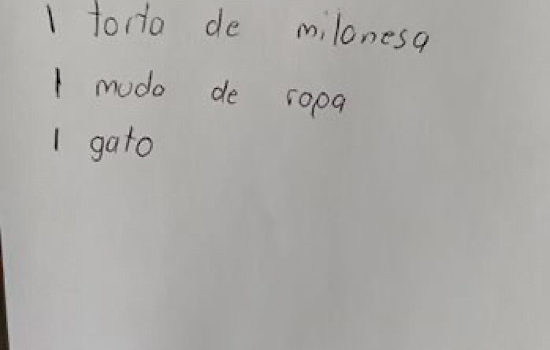 1 torta de milanesa
1 muda de ropa
1 gato